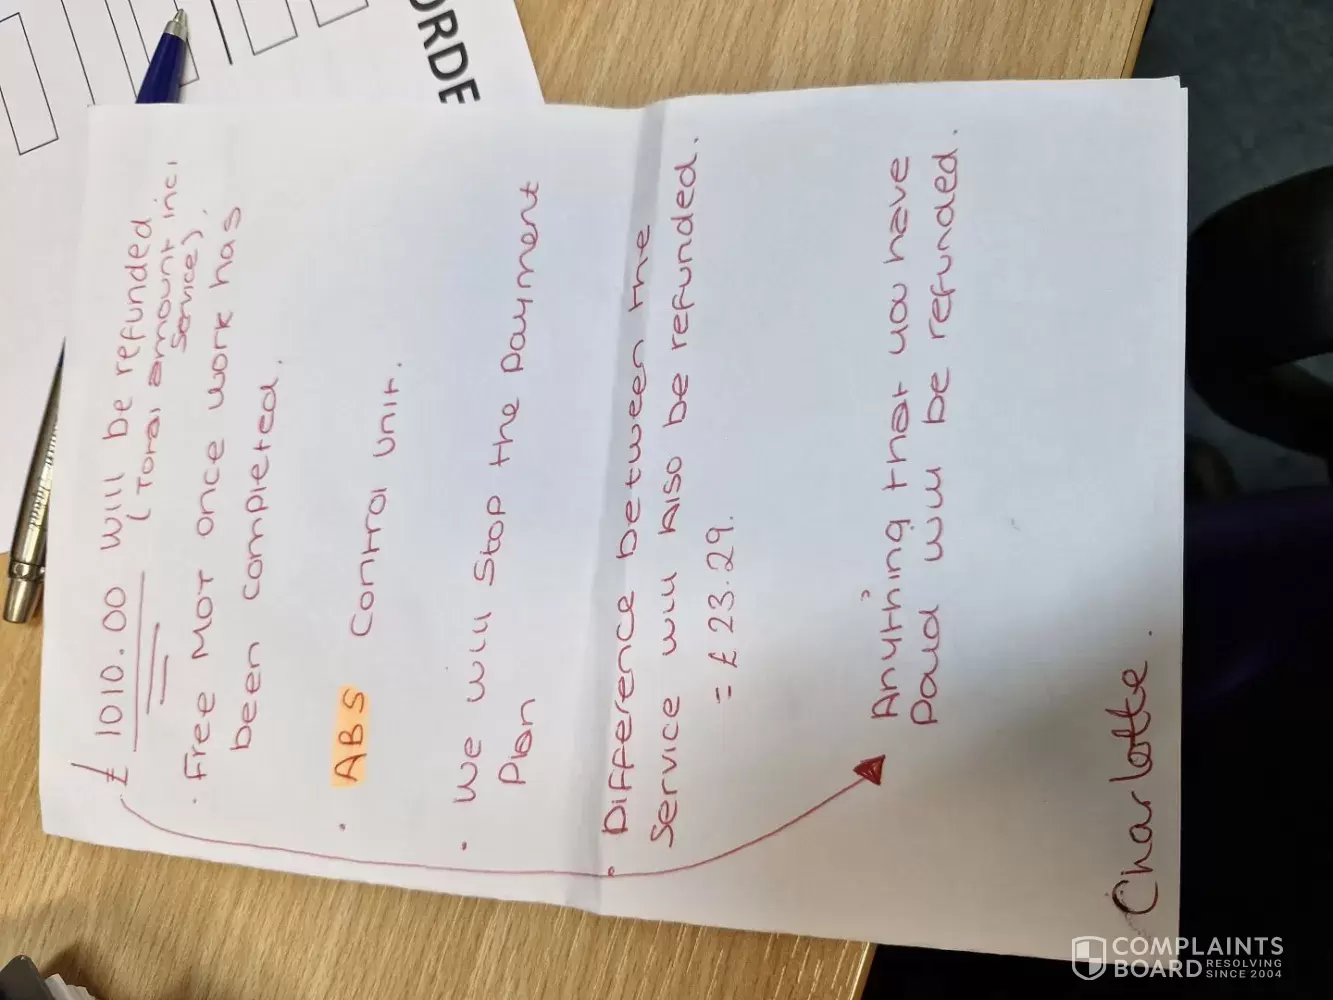 ORDE
£ 1010.00 will be refunded
(Total amount inc.
Service).
· Free MOT once work has
been completed.
· ABS Control unit.
· We will Stop the payment
Plan
· Difference between the
Service will Also be refunded.
= £23.29.
Anything that you have
paid will be refunded.
Charlotte.
COMPLAINTS
BOARD RESOLVING
SINCE 2004